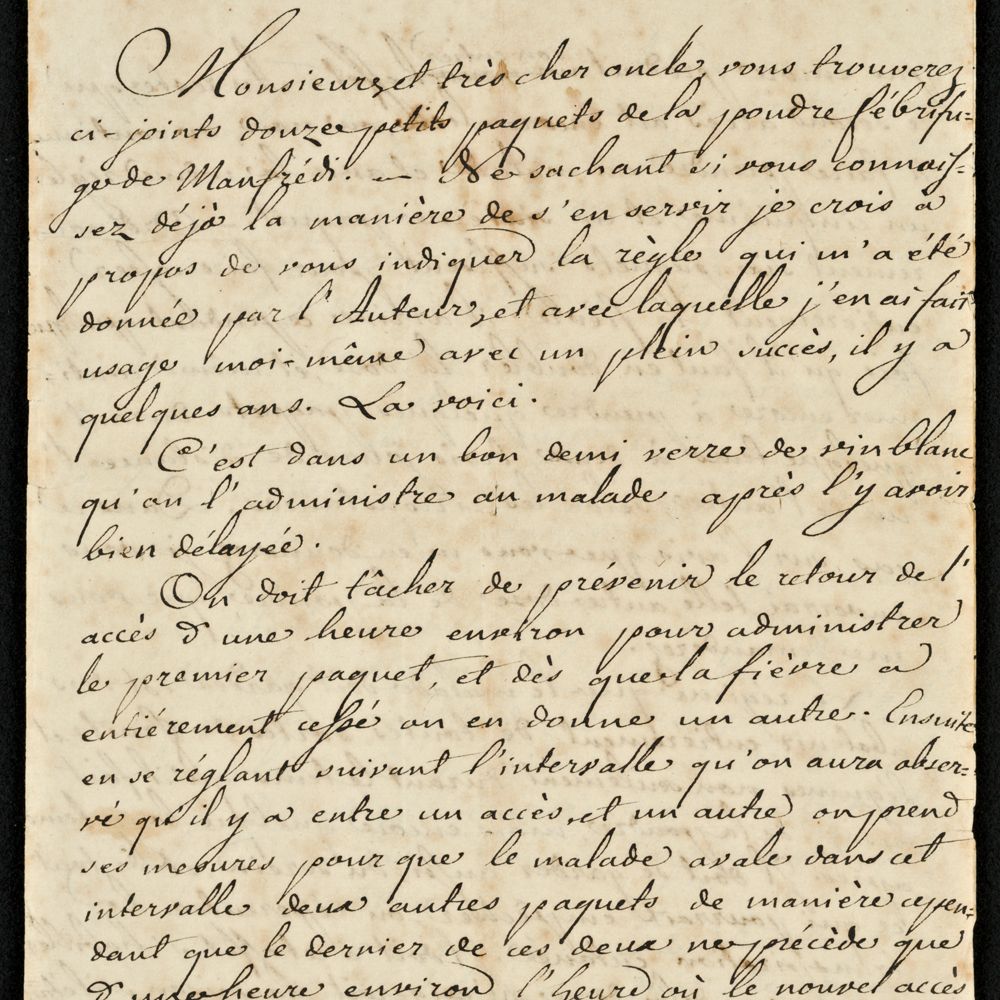 Monsieur, et très cher oncle, vous trouverez
ci-joints douze petits paquets de la poudre fébrifu=
ge de Manfrédi. — Ne sachant si vous connois=
sez déjà la manière de s'en servir je crois à
propos de vous indiquer la règle qui m'a été
donnée par l'Auteur, et avec laquelle j'en ai fait
usage moi-même avec un plein succès, il y a
quelques ans. La voici.
C'est dans un bon demi verre de vin blanc
qu'on l'administre au malade après l'y avoir
bien délayée.
On doit tâcher de prévenir le retour de l'
accès d'une heure environ pour administrer
le premier paquet, et dès que la fièvre a
entiérement cessé on en donne un autre. Ensuite
en se réglant suivant l'intervalle qu'on aura obser=
vé qu'il y a entre un accès, et un autre on prend
ses mesures pour que le malade avale dans cet
intervalle deux autres paquets de manière cepen=
dant que le dernier de ces deux ne précède que
d'une heure environ l'heure où le nouvel accès